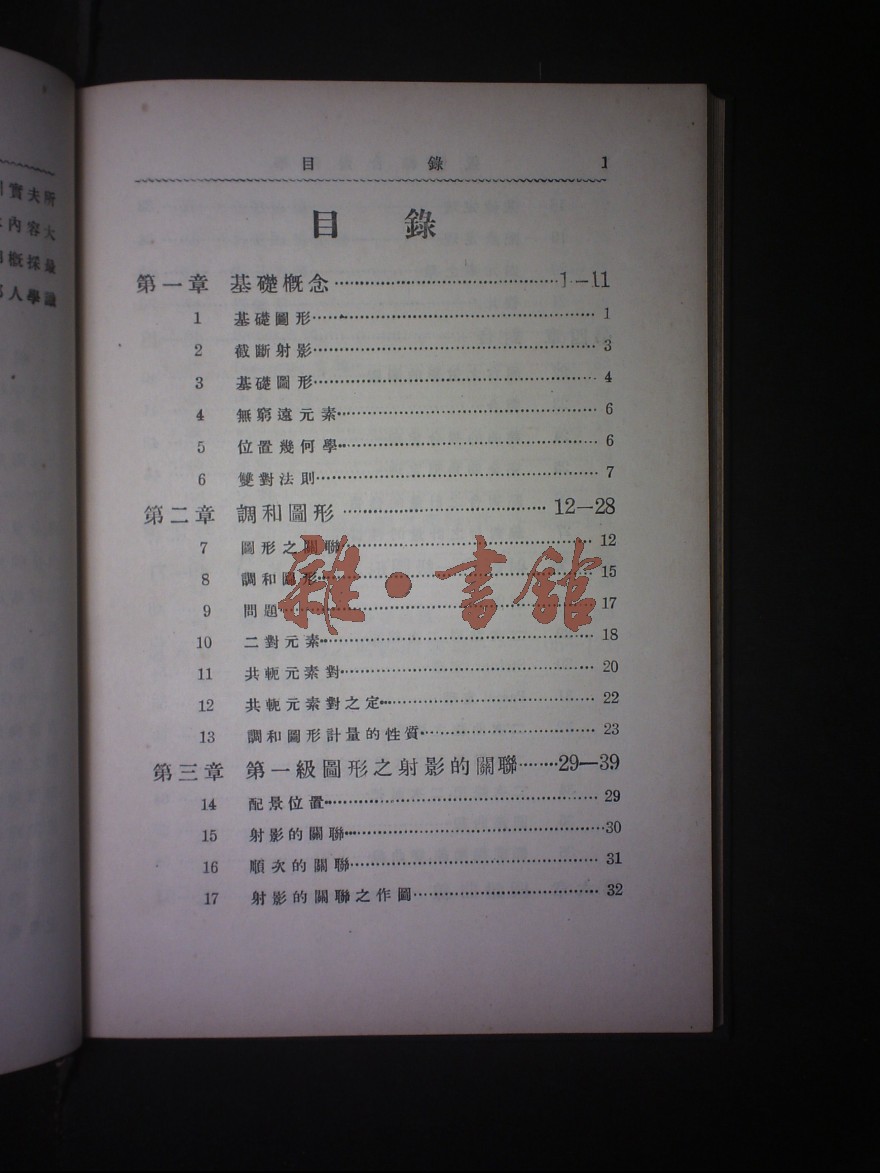 目 錄 1
目 錄
第一章 基礎概念……1—11
1 基礎圖形……1
2 截斷射影……3
3 基礎圖形……4
4 無窮遠元素……6
5 位置幾何學……6
6 雙對法則……7
第二章 調和圖形……12—28
7 圖形之關聯……12
8 調和圖形……15
9 問題……17
10 二對元素……18
11 共軛元素對……20
12 共軛元素對之定……22
13 調和圖形計量的性質……23
第三章 第一級圖形之射影的關聯……29—39
14 配景位置……29
15 射影的關聯……30
16 順次的關聯……31
17 射影的關聯之作圖……32
雜·書館